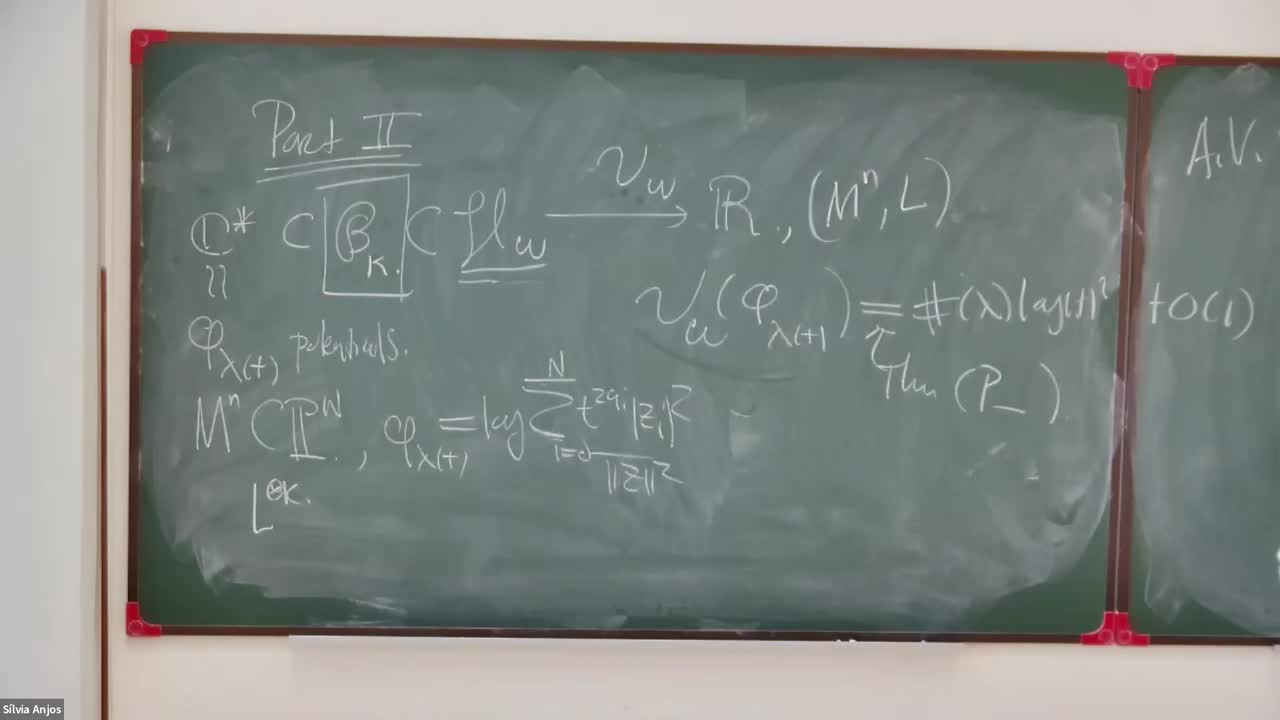 Part II
ℂ* ⊂ B_K. ⊂ H_ω ⟶^{ν_ω} ℝ., (Mⁿ, L)
φ_λ(t) potentials.
ν_ω(φ_λ(t)) = #(λ) log|t|² + O(1)
Thm (P_)
Mⁿ ⊂ ℙ^N., φ_λ(t) = log Σ_{i=0}^{N} t^{2q_i} |z_i|² / ||z||²
L^{⊗K}.
A.V.
Sílvia Anjos